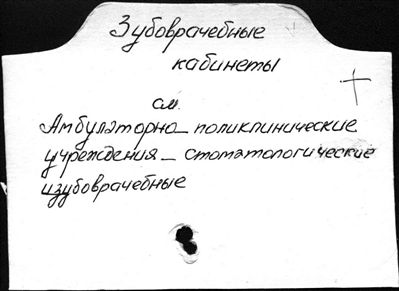 Зубоврачебные
кабинеты
см.
Амбулаторно-поликлинические
учреждения - стоматологические
и зубоврачебные